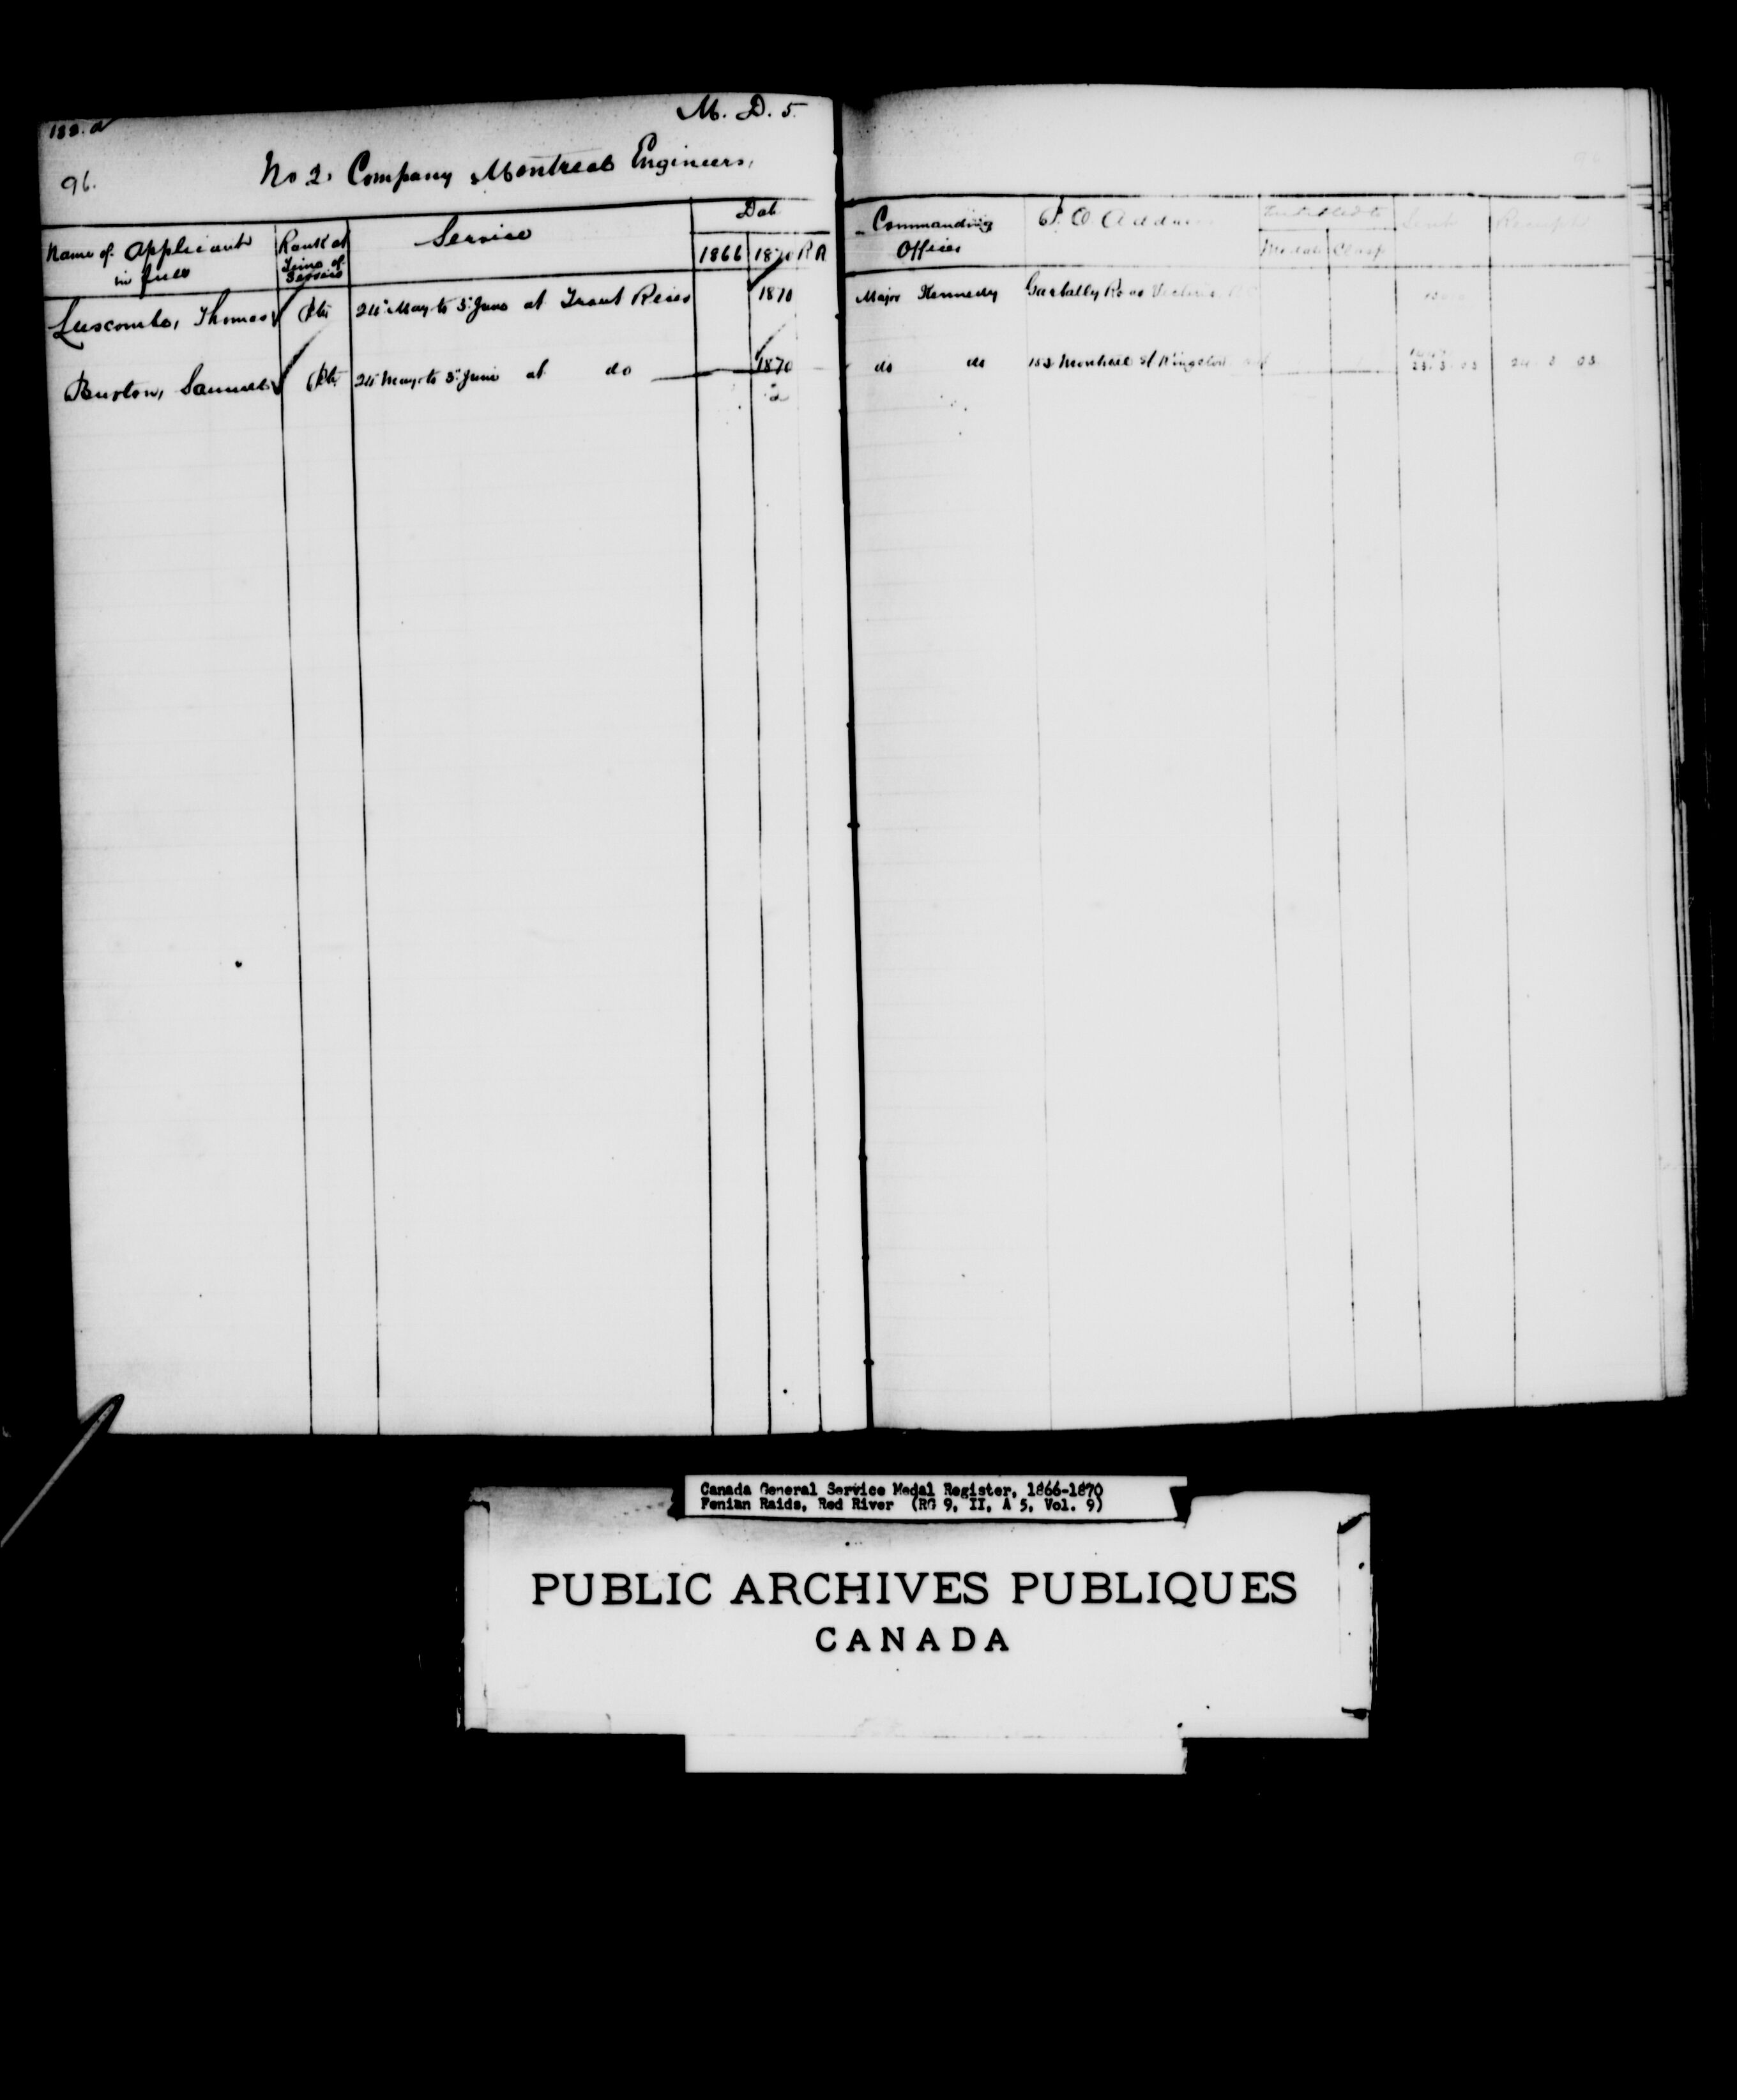 188. a
M. D. 5.
96.
No 2. Company Montreal Engineers,
Name of Applicant in full
Rank at Time of Service
Service
Date
1866 1870 R R
Commanding Officer
P. O Address
Entitled to
Medal Clasp
Sent
Receipt
Luscombe, Thomas Pte 24th May to 5th June at Trout River 1870 Major Kennedy Garbally Road Victoria, B C
Burton, Samuel Pte 24th May to 5th June at do 1870 do do 153 Montreal St Kingston
Canada General Service Medal Register, 1866-1870
Fenian Raids, Red River (RG 9, II, A 5, Vol. 9)
PUBLIC ARCHIVES PUBLIQUES
CANADA